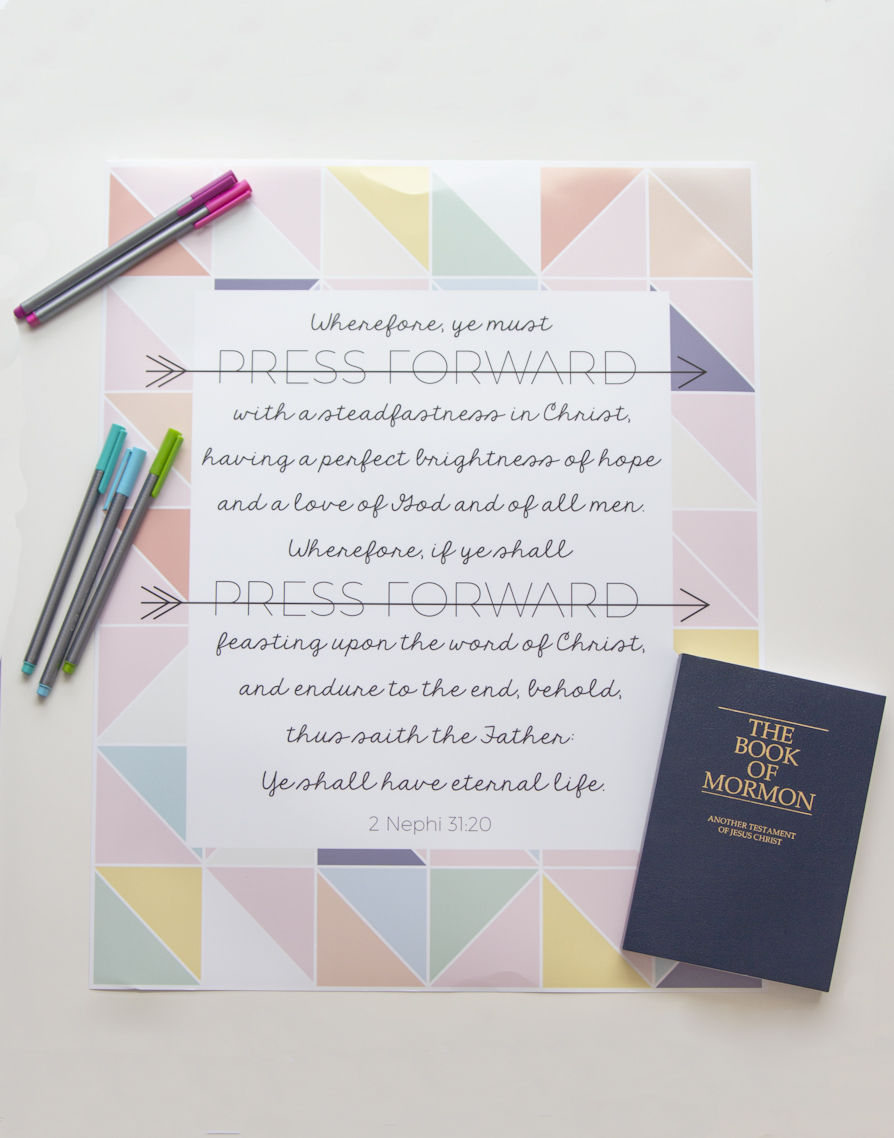 Wherefore, ye must
PRESS FORWARD
with a steadfastness in Christ,
having a perfect brightness of hope
and a love of God and of all men.
Wherefore, if ye shall
PRESS FORWARD
feasting upon the word of Christ,
and endure to the end, behold,
thus saith the Father:
Ye shall have eternal life.
2 Nephi 31:20
THE
BOOK
OF
MORMON
ANOTHER TESTAMENT
OF JESUS CHRIST